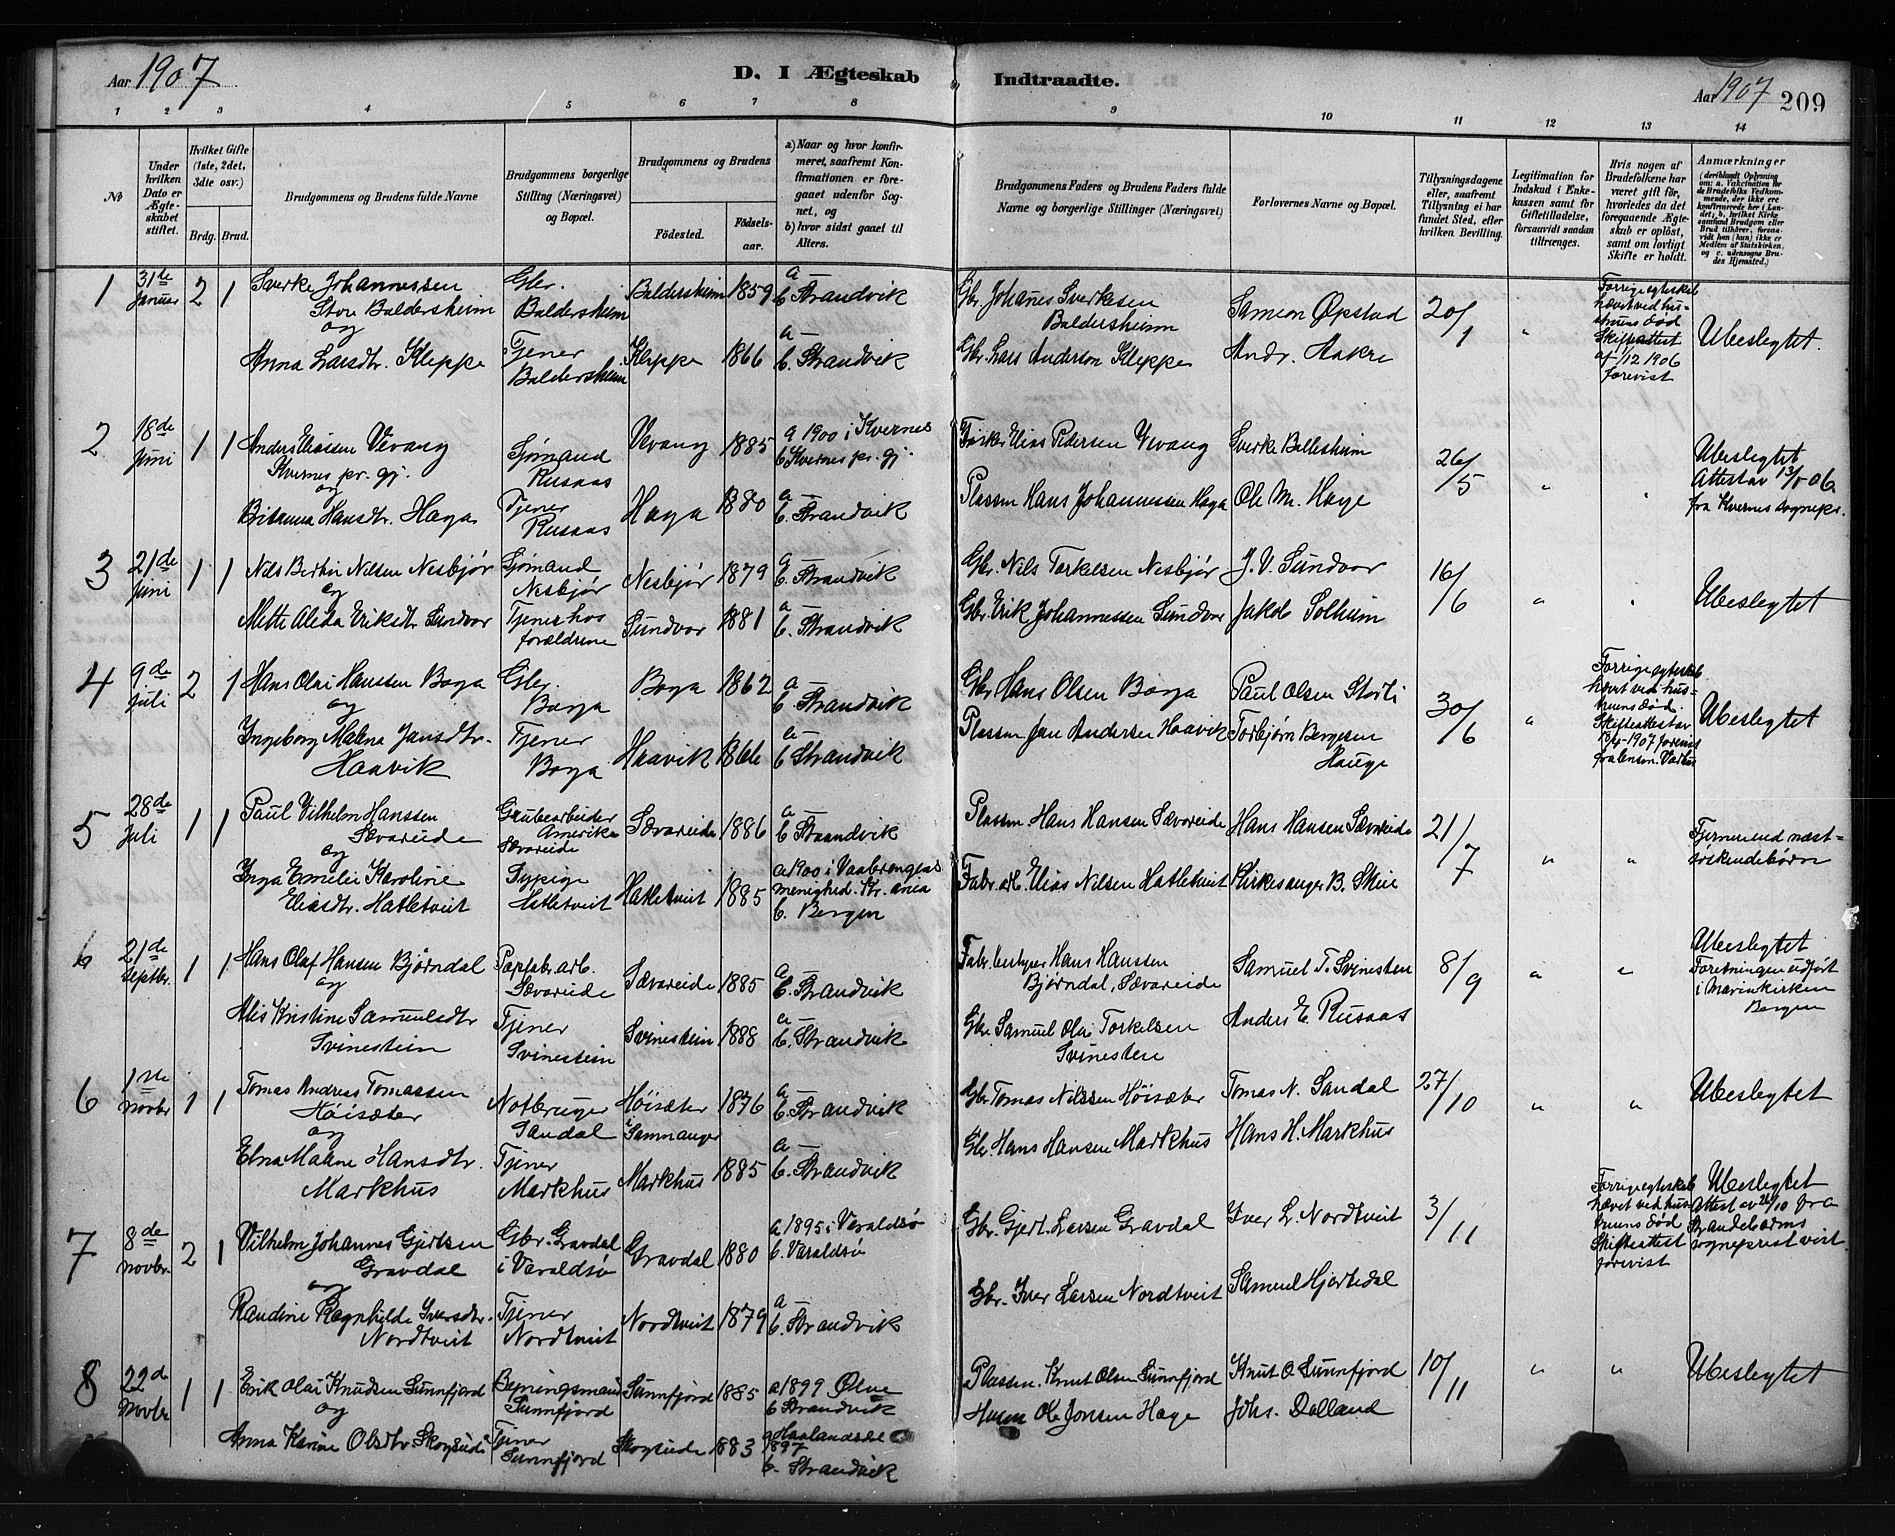 Aar 1907
D. I Ægteskab
Indtraadte.
Aar 1907 209
1 2 3 4 5 6 7 8 9 10 11 12 13 14
№
Under hvilken Dato er Ægteskabet stiftet.
Hvilket Gifte (1ste, 2det, 3die osv.)
Brdg. Brud.
Brudgommens og Brudens fulde Navne
Brudgommens borgerlige Stilling (Næringsvei) og Bopæl.
Brudgommens og Brudens
Fødested.
Fødselsaar.
a) Naar og hvor konfirmeret, saafremt Konfirmationen er foregaaet udenfor Sognet, og
b) hvor sidst gaaet til Alters.
Brudgommens Faders og Brudens Faders fulde Navne og borgerlige Stillinger (Næringsvei)
Forlovernes Navne og Bopæl.
Tillysningsdagene eller, saafremt Tillysning ei har fundet Sted, efter hvilken Bevilling.
Legitimation for Indskud i Enkekassen samt for Giftetilladelse, forsaavidt saadan tiltrænges.
Hvis nogen af Brudefolkene har været gift før, hvorledes da det foregaaende Ægteskab er opløst, samt om lovligt Skifte er holdt.
Anmærkninger
1 31te Januar 2 1 Sverke Johannessen Store Baldersheim Gbr. Baldersheim Baldersheim 1859 a — b Strandvik Gbr Johanes Sverkesen Baldersheim Samson Øpstad 20/1 " Forrige egteskab hævet ved hustruens død Skifteattest af 1/12 1906 forevist Ubeslegtet.
og
Anna Larsdtr. Kleppe Tjener Baldersheim Kleppe 1866 a — b. Strandvik Gbr. Lars Anderson Kleppe Andr. Aakre
2 18de Juni 1 1 Anders Eliassen Vevang Kvernes pr. gj. Sjømand Rusaas Vevang 1885 a 1900 i Kvernes b Kvernes pr. gj. Fisker Elias Pedersen Vevang Sverke Ballesheim 26/5 " " Ubeslegtet Attest av 13/5 06 fra Kvernes sogneprs.
og
Britanna Hansdtr. Haga Tjener Rusaas Haga 1880 a — b. Strandvik Plassm Hans Johannessen Haga Ole M. Hage
3 21de Juni 1 1 Nils Bertin Nilsen Nesbjør Sjømand Nesbjør Nesbjør 1879 a — b. Strandvik Gbr. Nils Torkelsen Nesbjør J. V. Sundvor 16/6 " " Ubeslegtet
og
Mette Alida Eriksdtr Sundvor Tjener hos forældrene Sundvor 1881 a — b. Strandvik Gbr Erik Johannessen Sundvor Jakob Solheim
4 9de juli 2 1 Hans Olai Hanssen Boga Gbr. Boga Boga 1862 a — b Strandvik Gbr Hans Olsen Boga Paul Olsen Storli 30/6 " Forrige egteskab hevet ved hustruens død. Skifteattest av 13/4-1907 forevist Ubeslegtet
og
Ingeborg Malena Jansdtr. Haavik Tjener Boga Haavik 1866 a — b Strandvik Plassm Jan Andersen Haavik Torbjørn Bergesen Hauge
5 28de juli 1 1 Paul Vilhelm Hanssen Sævareide Grubearbeider Amerika Sævareide Sævareide 1886 a — b Strandvik Plassm. Hans Hansen Sævareide Hans Hansen Sævareide 21/7 " " Fjernere end næstsøskendebørn
og
Inga Emelie Karoline Eliasdtr. Hatletveit Sypige Hatletveit Hatletveit 1885 a 1900 i Vaalerengens menighed. Kr.ania b. Bergen Fabr. arb. Elias Nilsen Hatletveit Kirkesanger B. Skeie
6 21de septbr. 1 1 Hans Olaf Hansen Bjørndal Papfabr.arb. Sævareide Sævareide 1885 a — b. Strandvik Fabr. bestyrer Hans Hanssen Bjørndal, Sævareide Samuel T. Svinesten 8/9 " " Ubeslegtet Foretningen udført i Mariakirken Bergen
og
Alis Kristine Samuelsdtr Svinestein Tjener Svinestein Svinestein 1888 a — b. Strandvik Gbr Samuel Olai Torkelsen Svinesten Anders E. Rusaas
6 1ste novbr 1 1 Tomas Andreas Tomassen Høisæter Notbruger Sandal Høisæter Sammanger 1876 a — b. Strandvik Gbr Tomas Nilssen Høisæter Tomas N. Sandal 27/10 " " Ubeslegtet
og
Elna Malene Hansdtr. Markhus Tjener Markhus Markhus 1885 a — b. Strandvik Gbr. Hans Hansen Markhus Hans H. Markhus
7 8de novbr. 2 1 Vilhelm Johannes Gjertsen Gravdal Gbr. Gravdal i Varaldsø Gravdal 1880 a 1895 i Varaldsø b. Varaldsø Gbr. Gjert Larsen Gravdal Iver L. Nordtveit 3/11 Forrige egteskab hævet ved hustruens død Skifteattest forevist Ubeslegtet Attest av 26/10 fra Strandebarms sogneprest vist.
og
Randine Ragnhilde Iversdtr. Nordtveit Tjener Nordtveit Nordtveit 1879 a — b. Strandvik Gbr. Iver Larsen Nordtveit Samuel Hjortedal
8 22de Novbr 1 1 Erik Olai Knudsen Sunnfjord Bergningsmand Sunnfjord Sunnfjord 1885 a 1899 Ølve b Strandvik Plassm. Knut Olsen Sunnfjord Knut O Sunnfjord 10/11 " " Ubeslegtet
og
Anna Karine Olsdtr Skogseide Tjener Sunnfjord Skogseide 1883 1897 b. Strandvik Husm Ole Jonsen Hage Johs. Dalland